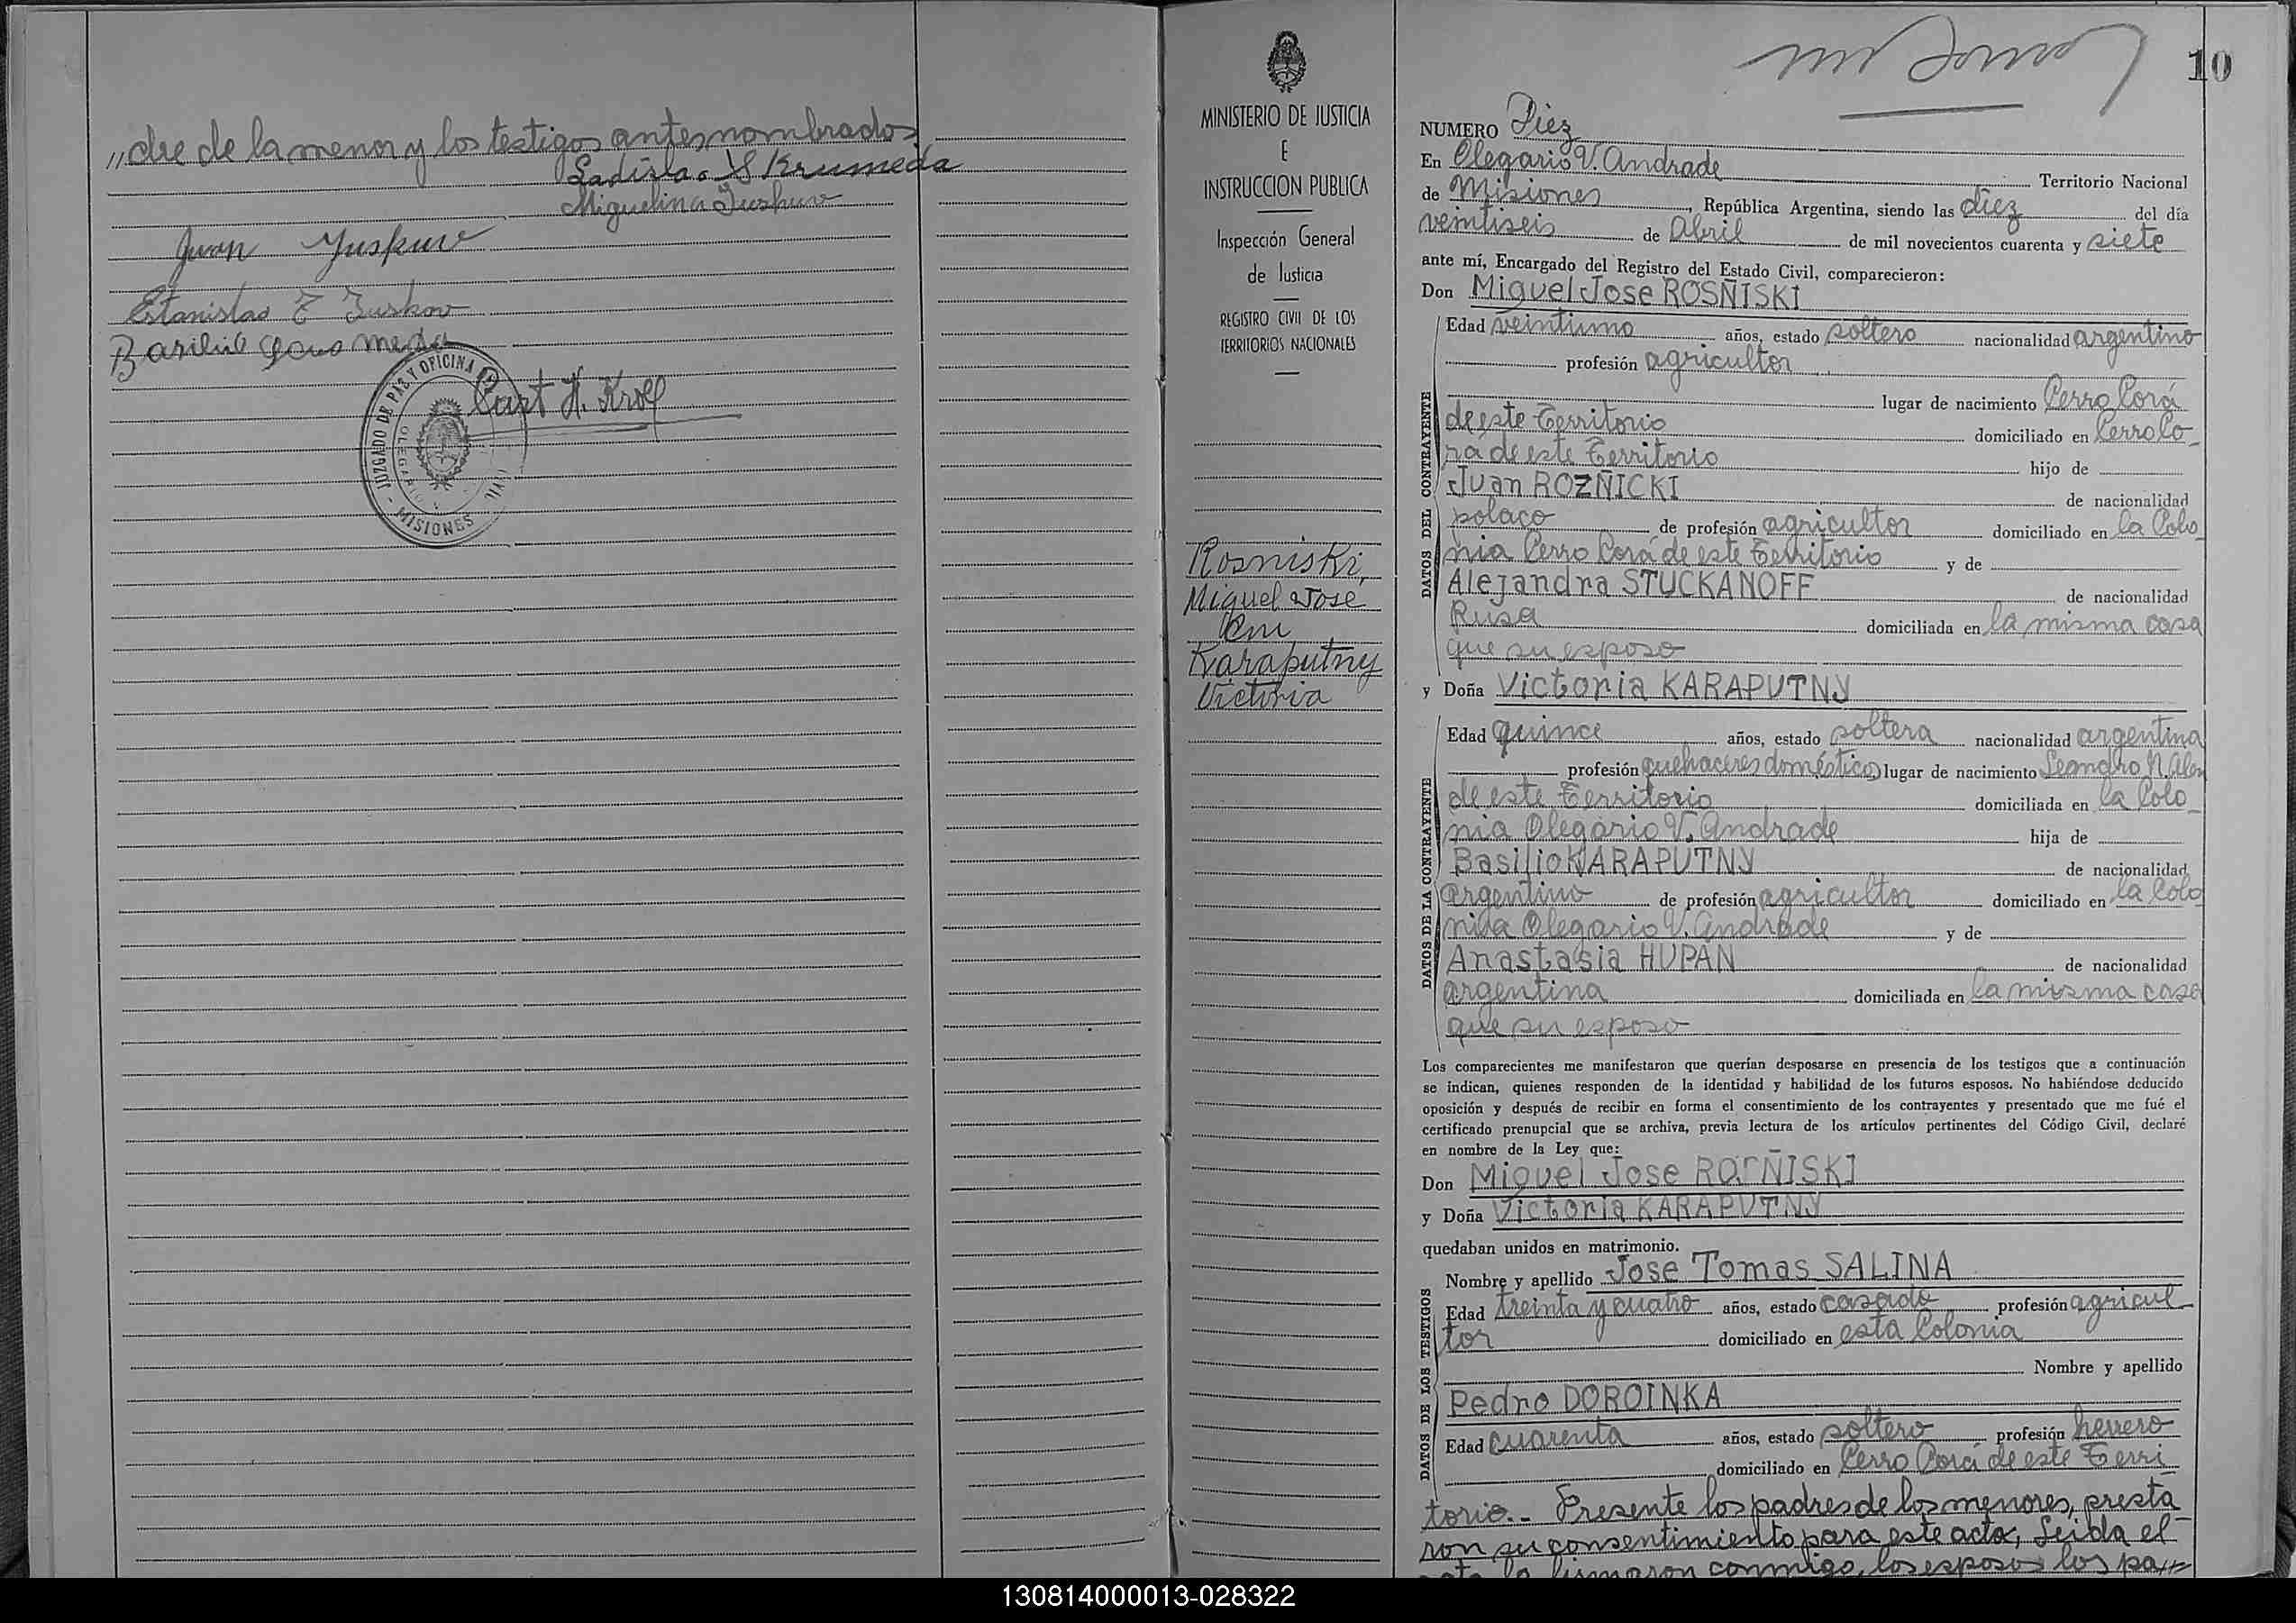 „dre de la menor y los testigos antes nombrados
Ladislao S Krumeda
Miguelina Juskuw
Juan Yuskuw
Estanislao E Juskow
Basilio
JUZGADO DE PAZ Y OFICINA
CIVIL
OLEGARIO
MISIONES
Curt H. Kroll
MINISTERIO DE JUSTICIA
E
INSTRUCCION PUBLICA
Inspección General
de Justicia
REGISTRO CIVIL DE LOS
TERRITORIOS NACIONALES
Rosniski,
Miguel Jose
Con
Karaputny
Victoria
10
NUMERO Diez
En Olegario V. Andrade Territorio Nacional
de Misiones, República Argentina, siendo las diez del día
veintiseis de Abril de mil novecientos cuarenta y siete
ante mí, Encargado del Registro del Estado Civil, comparecieron:
Don Miguel Jose ROSÑISKI
DATOS DEL CONTRAYENTE
Edad veintiuno años, estado soltero nacionalidad argentino
profesión agricultor
lugar de nacimiento Cerro Corá
de este Territorio domiciliado en Cerro Co-
rá de este Territorio hijo de
Juan ROZÑICKI de nacionalidad
polaco de profesión agricultor domiciliado en la Colo-
nia Cerro Corá de este Territorio y de
Alejandra STUCKANOFF de nacionalidad
Rusa domiciliada en la misma casa
que su esposo
y Doña Victoria KARAPUTNY
DATOS DE LA CONTRAYENTE
Edad quince años, estado soltera nacionalidad argentina
profesión quehaceres domésticos lugar de nacimiento Leandro N. Alem
de este Territorio domiciliada en la Colo-
nia Olegario V. Andrade hija de
Basilio KARAPUTNY de nacionalidad
argentino de profesión agricultor domiciliado en la Colo
nia Olegario V. Andrade y de
Anastasia HUPAN de nacionalidad
argentina domiciliada en la misma casa
que su esposo
Los comparecientes me manifestaron que querían desposarse en presencia de los testigos que a continuación
se indican, quienes responden de la identidad y habilidad de los futuros esposos. No habiéndose deducido
oposición y después de recibir en forma el consentimiento de los contrayentes y presentado que me fué el
certificado prenupcial que se archiva, previa lectura de los artículos pertinentes del Código Civil, declaré
en nombre de la Ley que:
Don Miguel Jose ROSÑISKI
y Doña Victoria KARAPUTNY
quedaban unidos en matrimonio.
DATOS DE LOS TESTIGOS
Nombre y apellido Jose Tomas SALINA
Edad treinta y cuatro años, estado casado profesión agricul-
tor domiciliado en esta Colonia
Nombre y apellido
Pedro DOROINKA
Edad cuarenta años, estado soltero profesión herrero
domiciliado en Cerro Corá de este Terri-
torio.- Presente los padres de los menores, presta-
ron su consentimiento para este acta, Leida el
acta la firmaron conmigo, los esposos los pa„
130814000013-028322